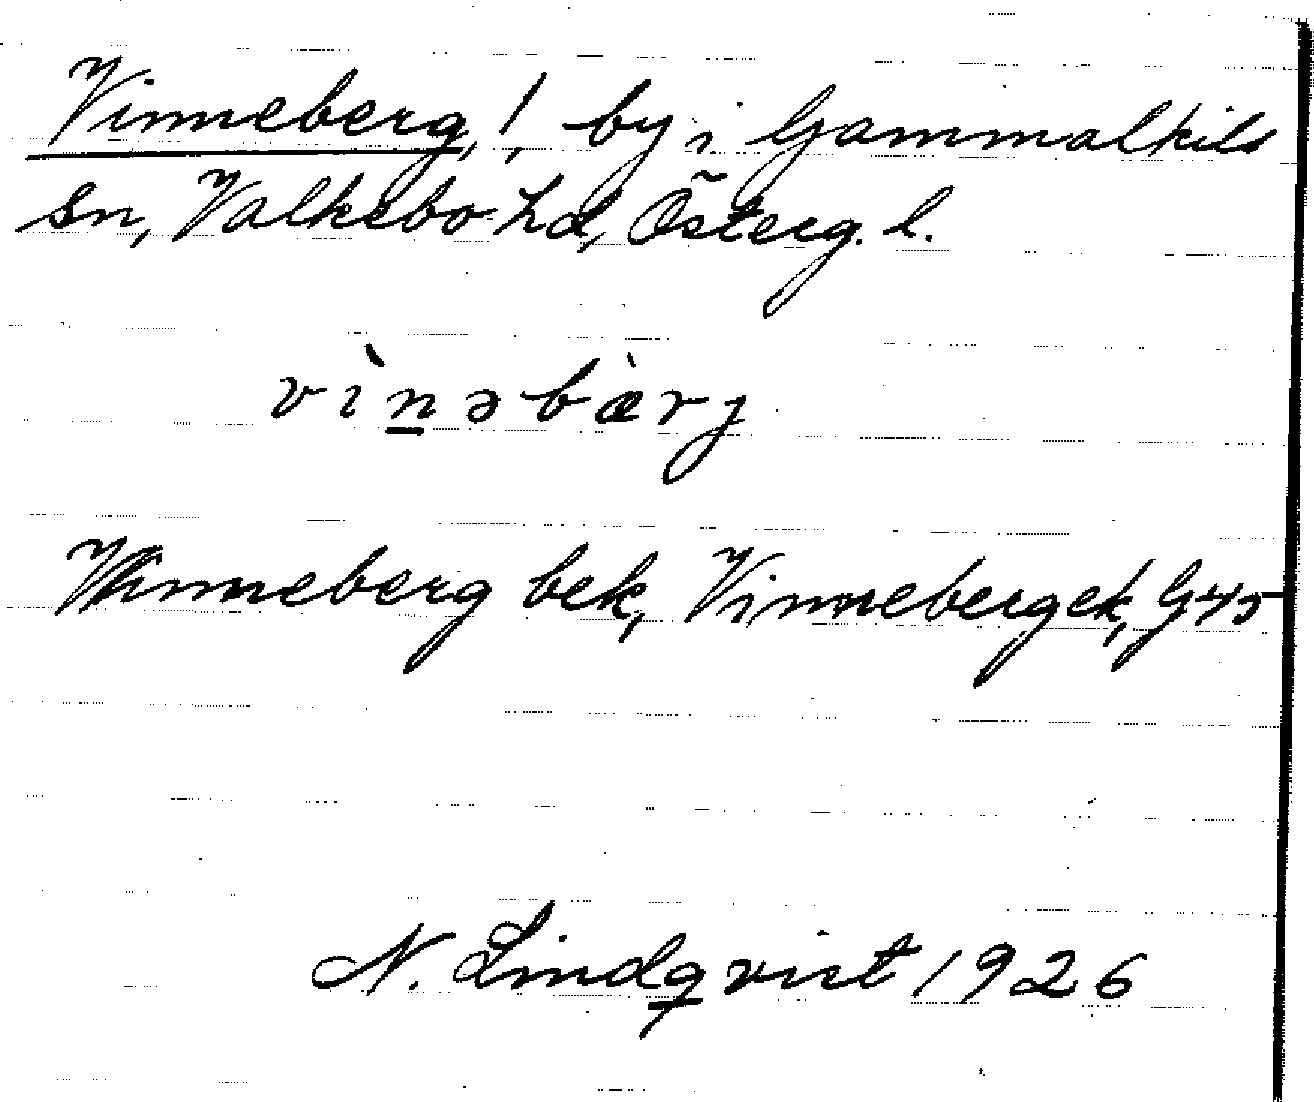 Vinneberg, !, by i Gammalkils
sn, Valkebo hd, Österg. l.
vìnəbæ̀rj
Vinneberg bek, Vinnebergek, G45
N. Lindqvist 1926